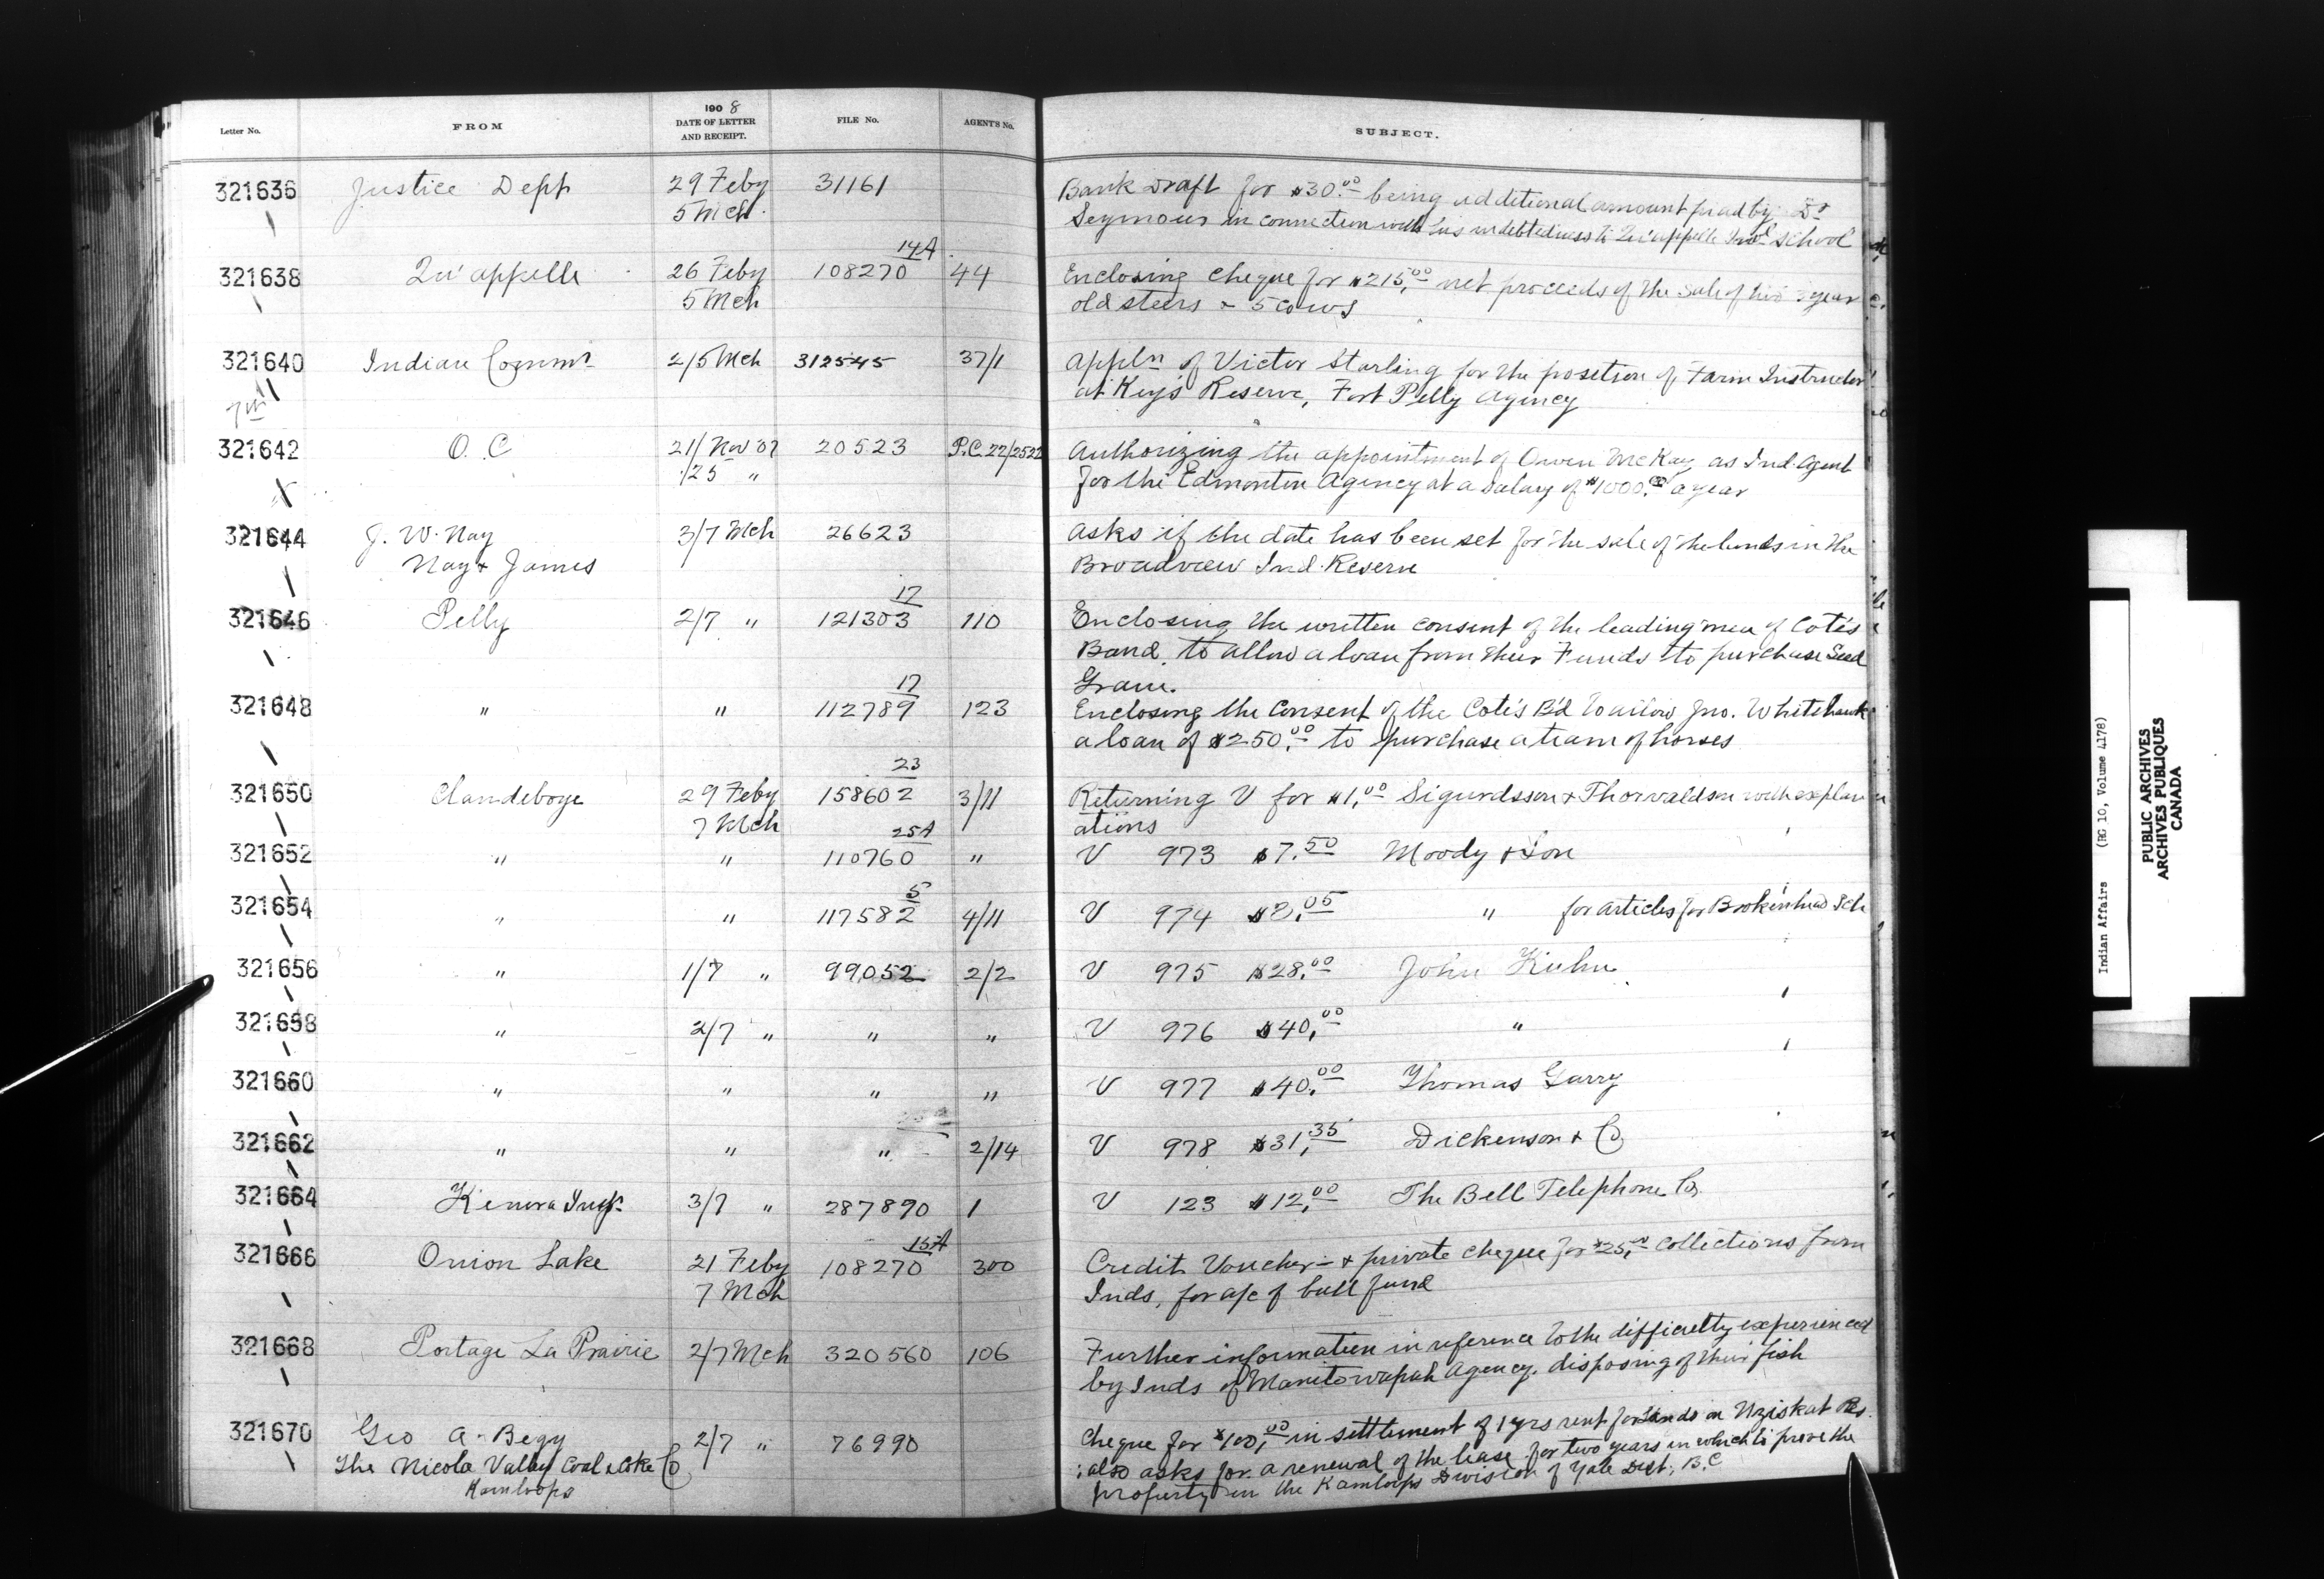 Letter No. FROM 1908 DATE OF LETTER AND RECEIPT. FILE No. AGENT'S No. SUBJECT.
321636 Justice Dept 29 Feby 31161 Bank Draft for $30.00 being additional amount paid by Dr
5 Mch Seymour in connection with his indebtedness to Qu'appelle Indl School
14A
321638 Qu'appelle 26 Feby 108270 44 Enclosing cheque for $215.00 net proceeds of the sale of two 3 year
5 Mch old steers & 5 cows
321640 Indian Commr 2/5 Mch 312545 37/1 Appln of Victor Starling for the position of Farm Instructor
at Keys Reserve, Fort Pelly Agency
321642 O. C 21/ Nov 07 20523 P.C. 22/2522 Authorizing the appointment of Owen McKay as Ind. Agent
/25 " for the Edmonton Agency at a salary of $1000.00 a year
321644 J. W. Nay 3/7 Mch 26623 Asks if the date has been set for the sale of the lands in the
Nay & James Broadview Ind. Reserve
17
321646 Pelly 2/7 " 121303 110 Enclosing the written consent of the leading men of Cote's
Band to allow a loan from their Funds to purchase Seed
Grain.
17
321648 " " 112789 123 Enclosing the Consent of the Cote's Bd to allow Jno. Whitehawk
a loan of $250.00 to purchase a team of horses
23
321650 Clandeboye 29 Feby 158602 3/11 Returning V for $1.00 Sigurdsson & Thorvaldson with explan
7 Mch ations
25A
321652 " " 110760 " V 973 $7.50 Moody & Son
5
321654 " " 117582 4/11 V 974 $8.05 " for articles for Brokenhead Sch
321656 " 1/7 " 99,052 2/2 V 975 $28.00 John Kuhn
321658 " 2/7 " " " V 976 $40.00 "
321660 " " " " V 977 $40.00 Thomas Garry
321662 " " " 2/14 V 978 $31.35 Dickenson & Co
321664 Kenora Insp. 3/7 " 287890 1 V 123 $12.00 The Bell Telephone Co.
15A
321666 Onion Lake 21 Feby 108270 300 Credit Voucher & private cheque for $25.00 collections from
7 Mch Inds, for a/c of bull fund
321668 Portage La Prairie 2/7 Mch 320560 106 Further information in reference to the difficulty experienced
by Inds of Manitowapah Agency, disposing of their fish
321670 Geo A. Begy 2/7 " 76990 Cheque for $100.00 in settlement of 1 yrs rent for lands in Nziskat Res.
The Nicola Valley Coal & Coke Co ; also asks for a renewal of the lease for two years in which to prove the
Kamloops property in the Kamloops Division of Yale Dist, B.C
Indian Affairs (RG 10, Volume 4178)
PUBLIC ARCHIVES
ARCHIVES PUBLIQUES
CANADA